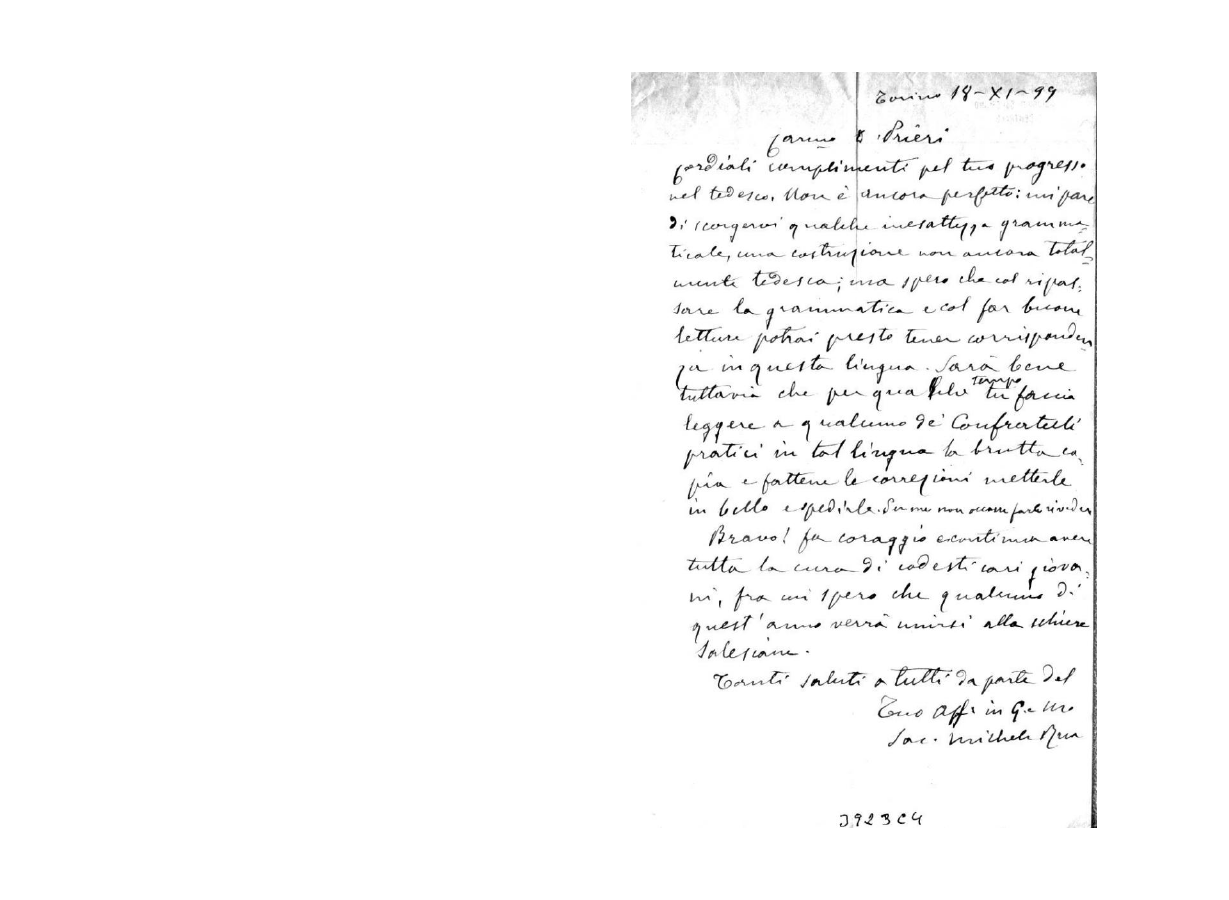 Torino 18-XI-99
Carmo D. Prieri
Cordiali complimenti pel tuo progresso
nel tedesco. Non è ancora perfetto: mi pare
di scorgervi qualche inesattezza gramma-
ticale, una costruzione non ancora total-
mente tedesca; ma spero che col ripas-
sare la grammatica e col far buone
letture potrai presto tener corrisponden
za in questa lingua. Sarà bene
tuttavia che per qualche tempo tu faccia
leggere a qualcuno de' Confratelli
pratici in tal lingua la brutta co-
pia e fattene le correzioni metterle
in bello e spedirle. Su me non occorre farle riveder
Bravo! fa coraggio e continua avere
tutta la cura di codesti cari giova-
ni, fra cui spero che qualcuno di
quest'anno verrà unirsi alla schiere
Salesiane.
Tanti saluti a tutti da parte del
Tuo Aff. in G. e M.
Sac. Michele Rua
3923C4